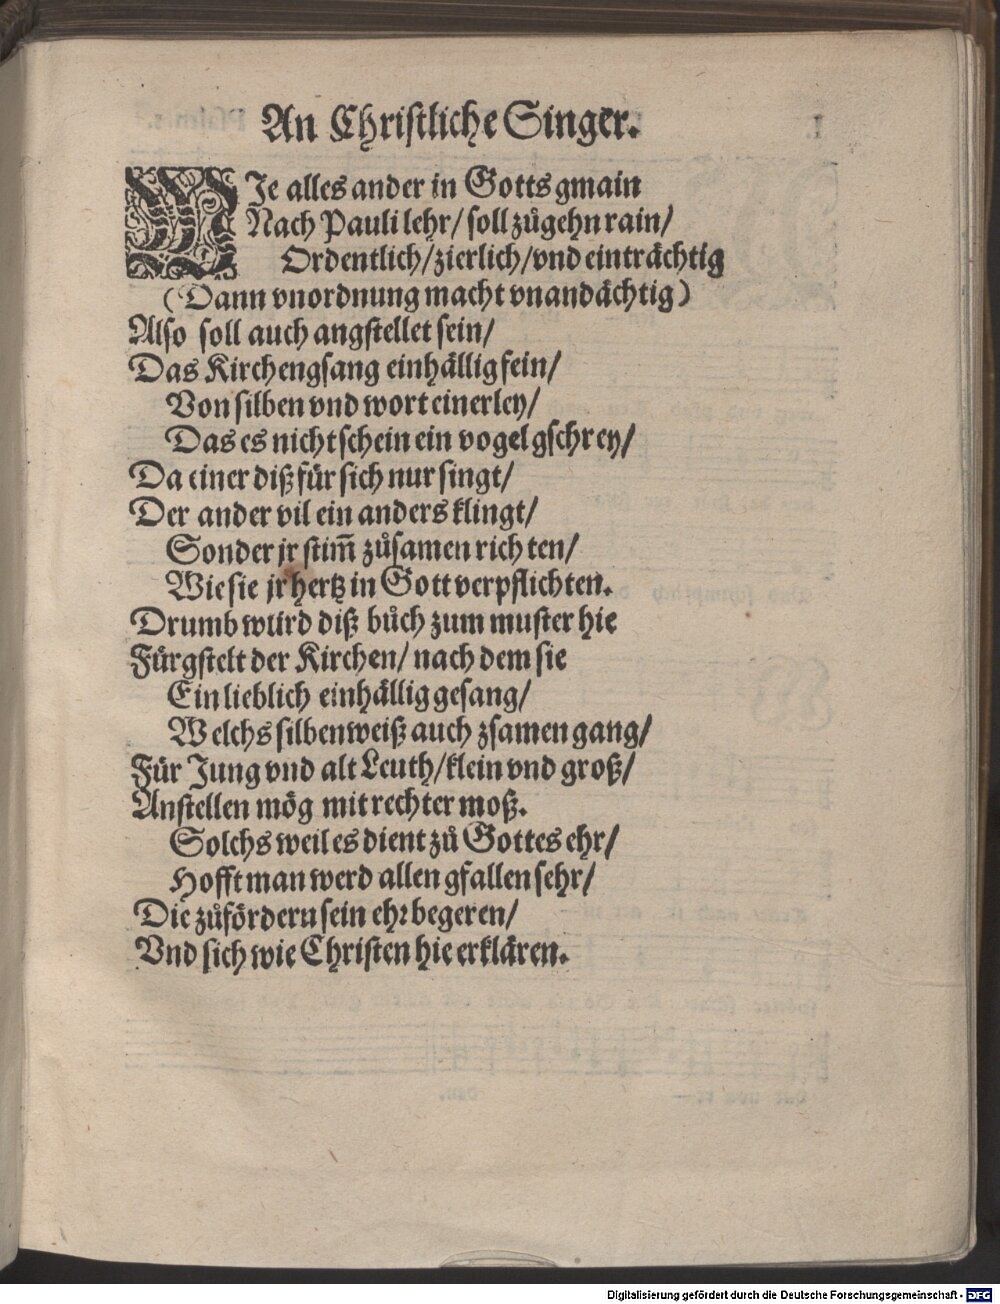 An Christliche Singer.
WJe alles ander in Gotts gmain
Nach Pauli lehr/ soll zůgehn rain/
Ordentlich/zierlich/vnd einträchtig
(Dann vnordnung macht vnandächtig)
Also soll auch angstellet sein/
Das Kirchengsang einhällig fein/
Von silben vnd wort einerley/
Das es nicht schein ein vogel gschrey/
Da einer diß für sich nur singt/
Der ander vil ein anders klingt/
Sonder jr stim̃ zůsamen richten/
Wie sie jr hertz in Gott verpflichten.
Drumb würd diß bůch zum muster hie
Fürgstelt der Kirchen/ nach dem sie
Ein lieblich einhällig gesang/
Welchs silbenweiß auch zsamen gang/
Für Jung vnd alt Leuth/klein vnd groß/
Anstellen mög mit rechter moß.
Solchs weil es dient zů Gottes ehr/
Hofft man werd allen gfallen sehr/
Die zůfördern sein ehr begeren/
Vnd sich wie Christen hie erklären.
Digitalisierung gefördert durch die Deutsche Forschungsgemeinschaft - DFG